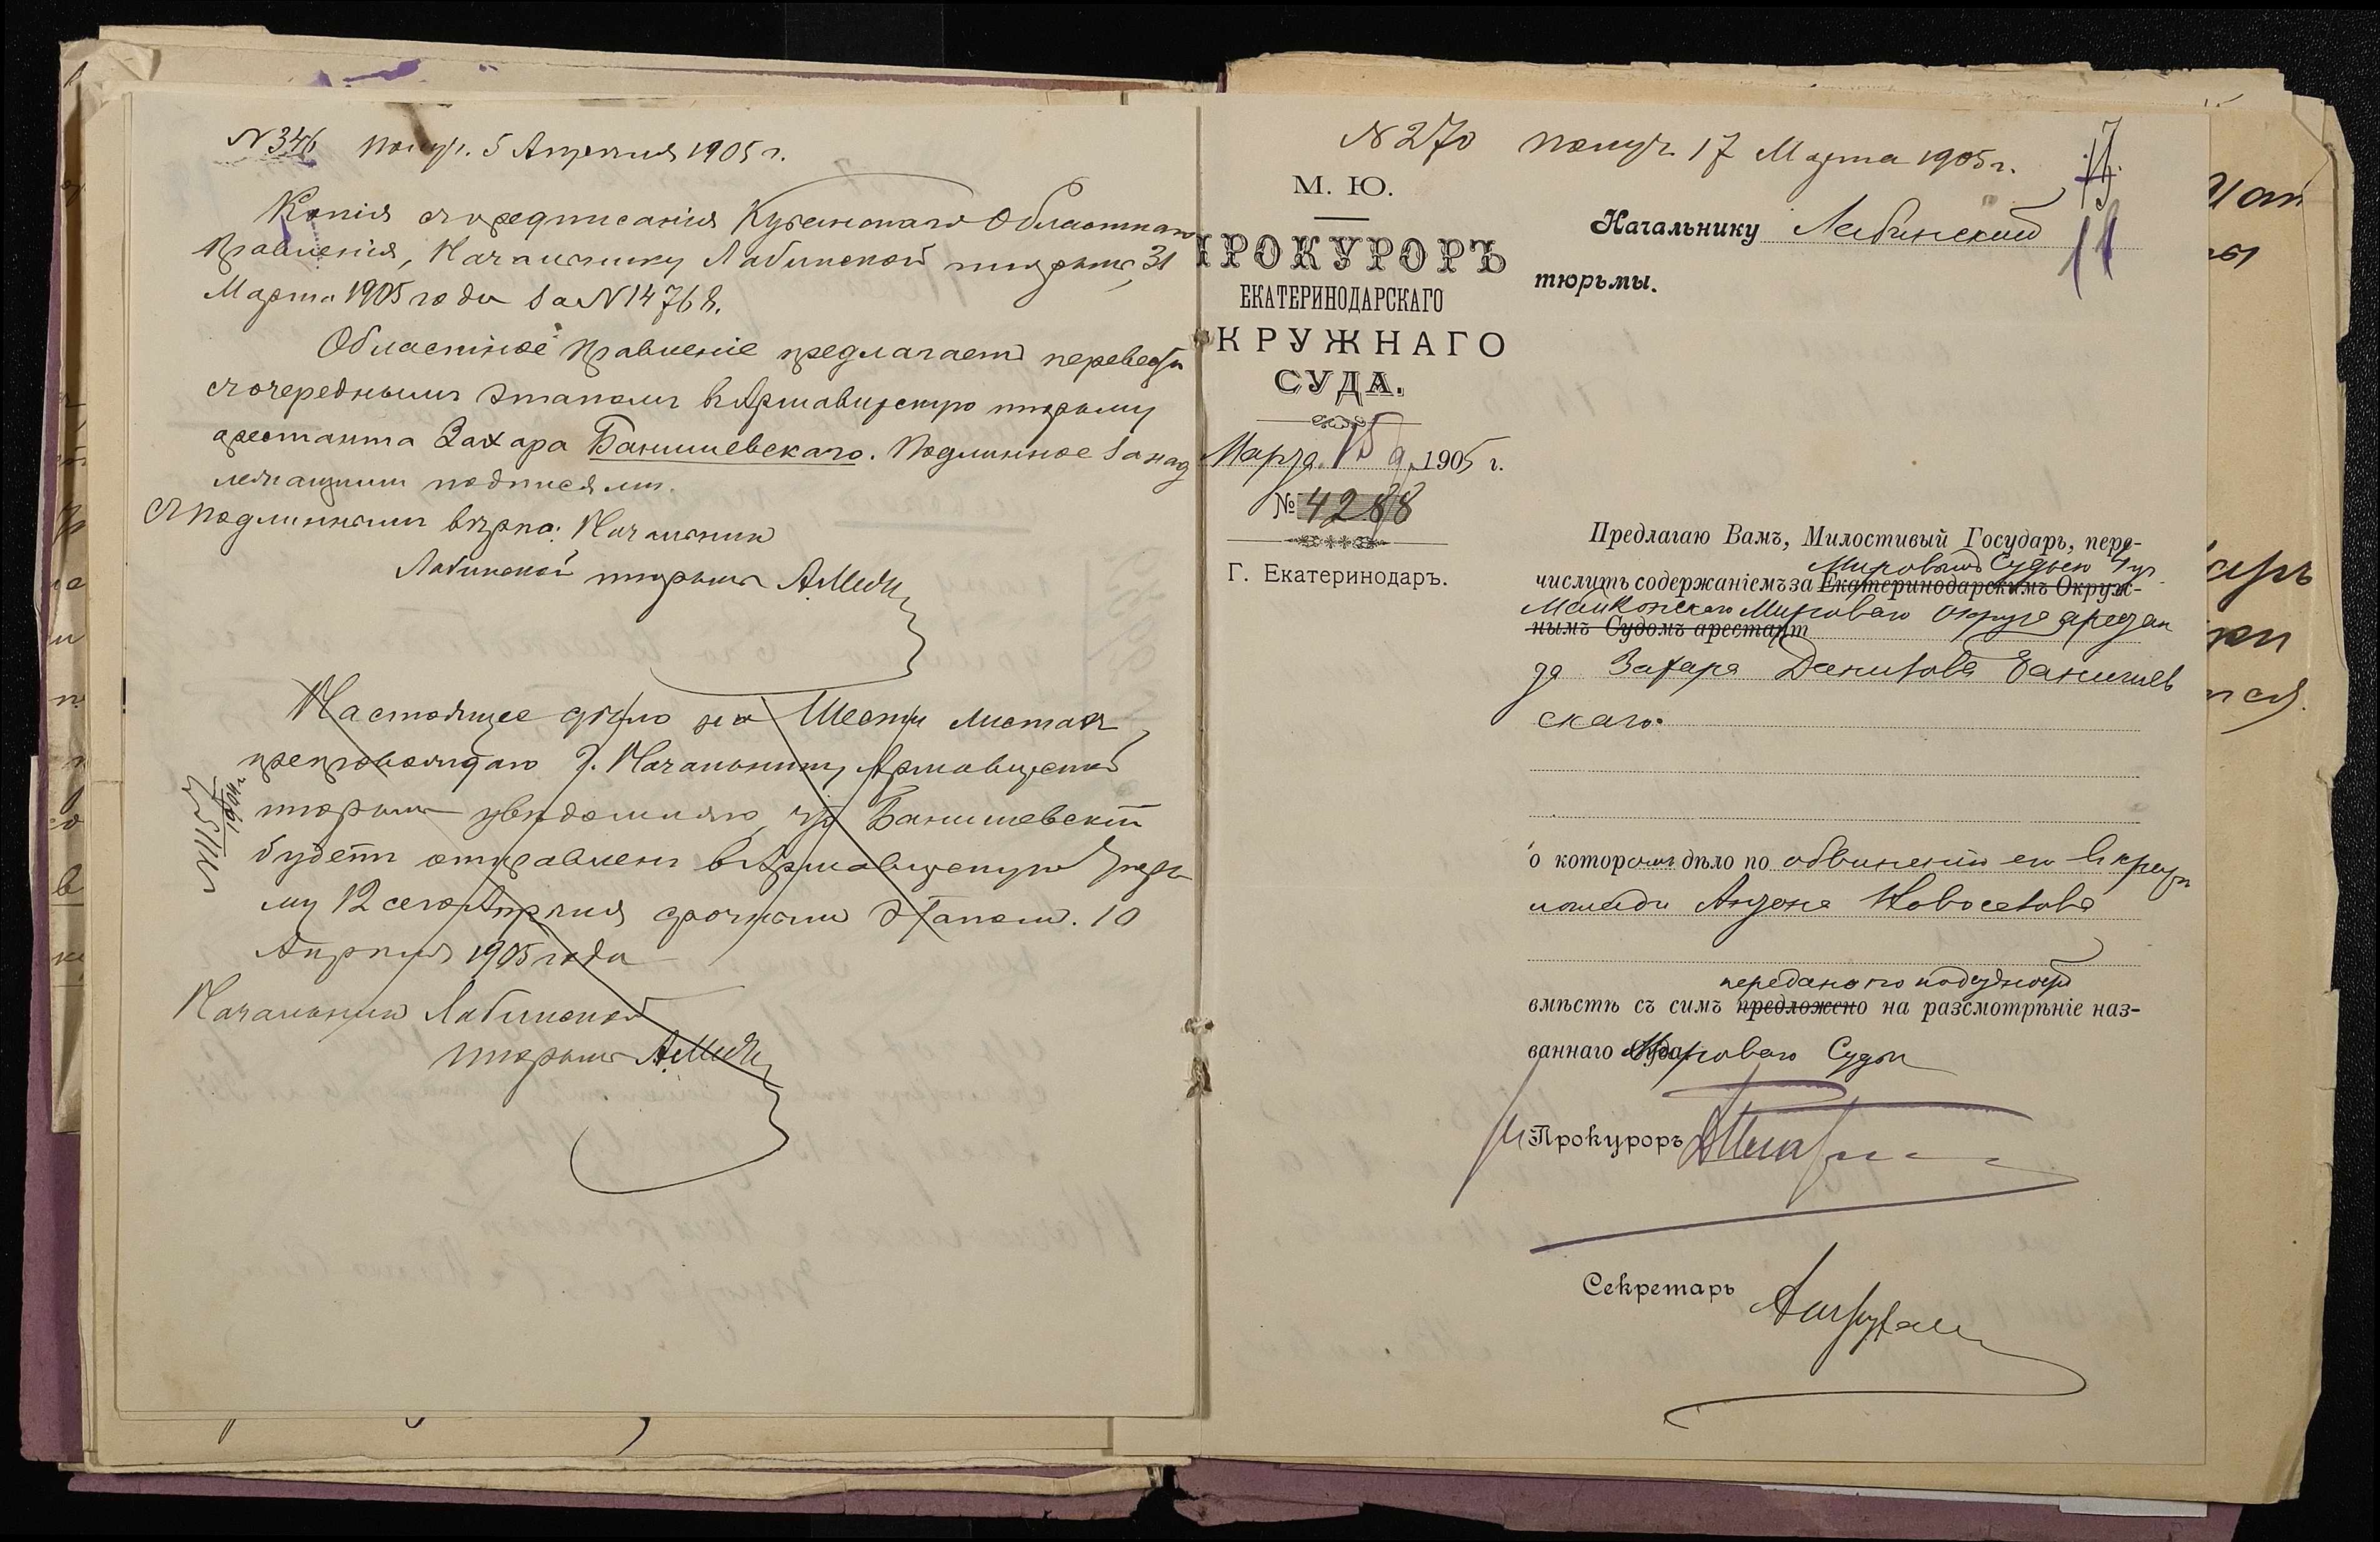 № 346 получ. 5 Апреля 1905 г.
Копія съ предписанія Кубанскаго Областнаго
Правленія, Начальнику Лабинской тюрьмы, 31
Марта 1905 года за № 14768.
Областное Правленіе предлагаетъ перевести
съ очереднымъ этапомъ въ Армавирскую тюрьму
арестанта Захара Банишевскаго. Подлинное за над
лежащими подписями.
Съ подлиннымъ вѣрно: Начальник
Лабинской тюрьмы
Настоящее дѣло на Шести листах
препровождаю Г. Начальнику Армавирской
тюрьмы увѣдомляю, что Банишевскій
будетъ отправленъ въ Армавирскую тюрь
му 12 сего Апрѣля срочным этапом. 10
Апрѣля 1905 года
Начальник Лабинской
тюрьмы
№ 270 получ. 17 Марта 1905 г.
М. Ю.
ПРОКУРОРЪ
ЕКАТЕРИНОДАРСКАГО
ОКРУЖНАГО
СУДА.
Марта 15 д. 1905 г.
№ 4288
Г. Екатеринодаръ.
Начальнику Лабинской
тюрьмы.
Предлагаю Вамъ, Милостивый Государь, пере-
Мировымъ Судьею
числить содержаніемъ за Екатеринодарскимъ Окруж-
Майкопскаго Мироваго округа арестан
нымъ Судомъ арестант
та Захара Данилова Банишев
скаго.
о которомъ дѣло по обвиненію его въ кражѣ
лошади Антона Новоселова
передано по подсудности
вмѣстѣ съ симъ предложено на разсмотрѣніе наз-
ваннаго Суда Мироваго Судьи
Прокуроръ
Секретарь